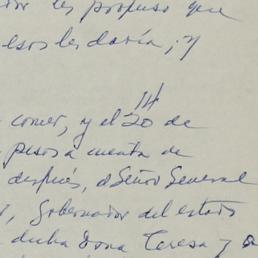 les propuso que
esos les daría; y
14
comer, y el 20 de
pesos a cuenta de
después, el Señor General
Gobernador del estado
dicha Dona Teresa y